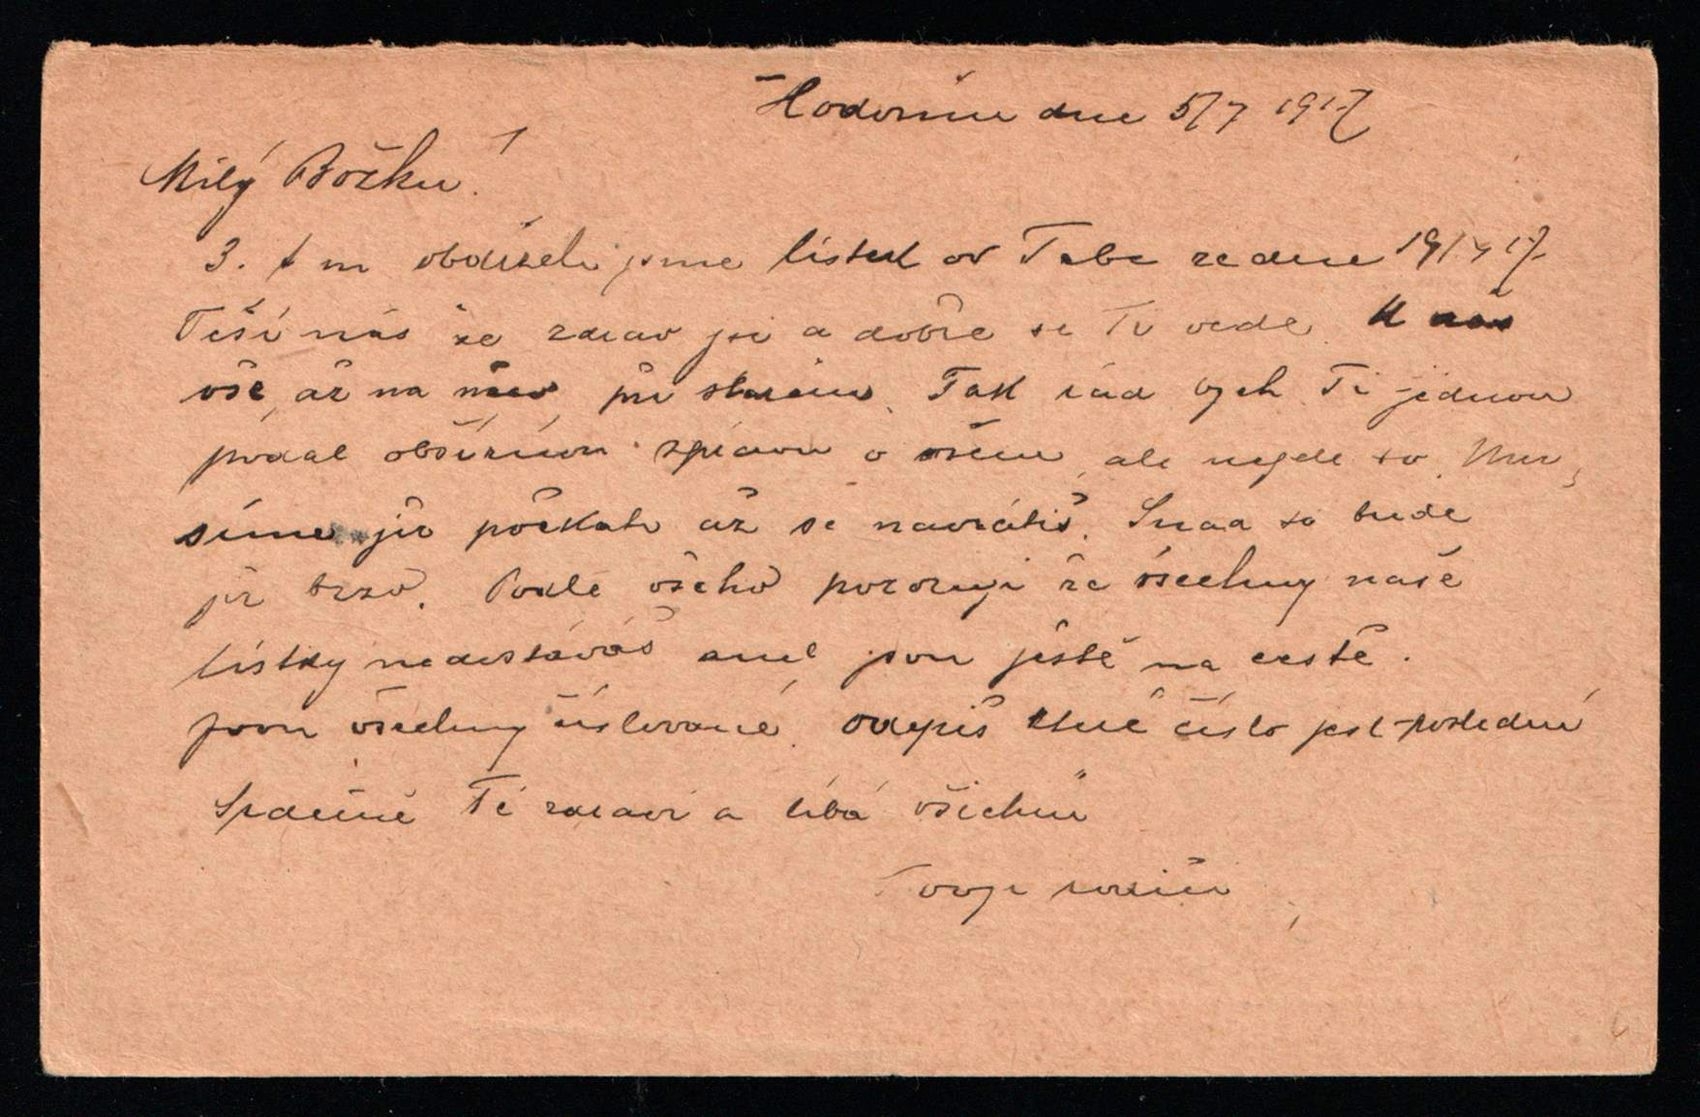 Hodonín dne 5/7 1917
Milý Božku!
3. t m obdrželi jsme lístek od Tebe ze dne 19/4 17.
Těší nás že zdráv jsi a dobře se Ti vede. U nás
vše, až na při starém. Tak rád bych Ti jednou
podal obšírnou zprávu o všem, ale nejde to. Mu-
síme již počkati až se navrátíš. Snad to bude
již brzo. Podle všeho pozoruji že všechny naše
lístky nedostáváš aneb jsou ještě na cestě.
Jsou všechny číslované. Odepiš které číslo jest poslední
Srdečně Tě zdraví a líbá všichni
Tvoji rodiče